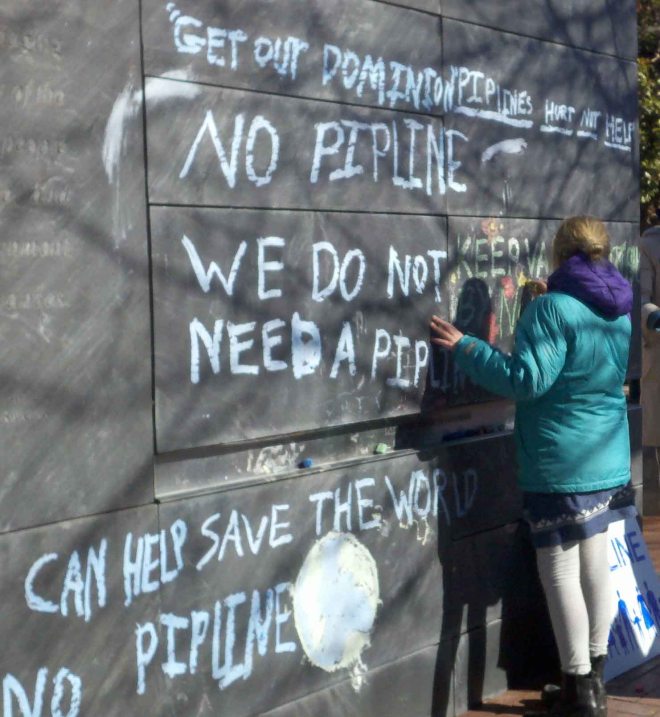 "GET OUT DOMINION "PIPLINES HURT NOT HELP
NO PIPLINE
WE DO NOT
NEED A PIPLINE
KEEP VA
CAN HELP SAVE THE WORLD
NO PIPLINE
NO
LINE